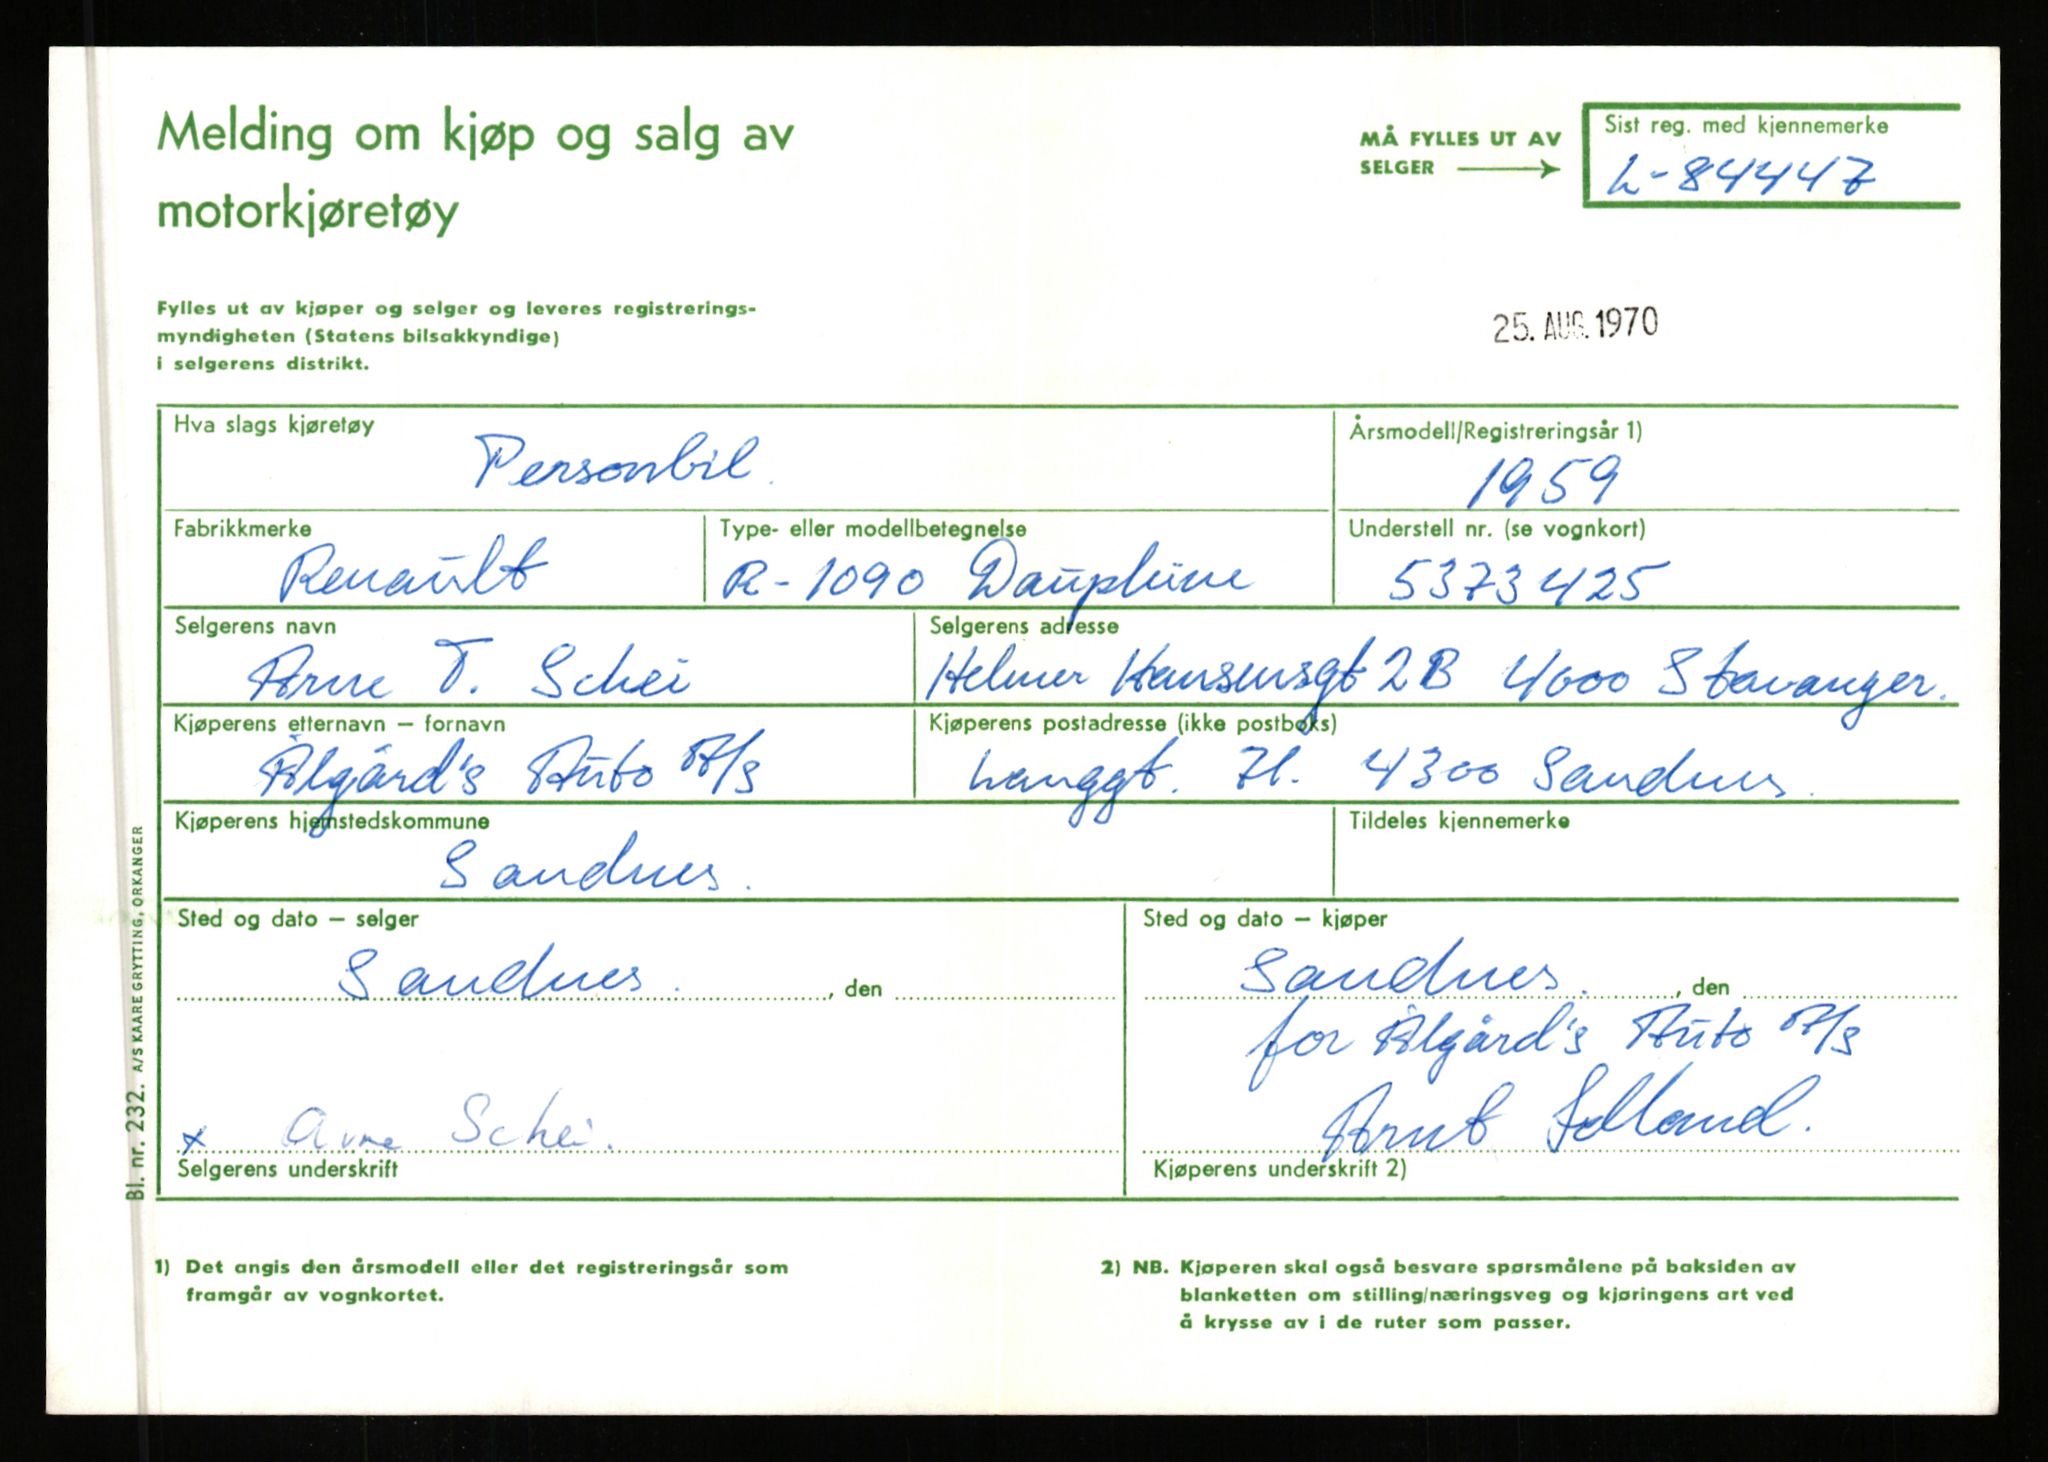 Melding om kjøp og salg av
motorkjøretøy
MÅ FYLLES UT AV
SELGER
Sist reg. med kjennemerke
L-84447
Fylles ut av kjøper og selger og leveres registrerings-
myndigheten (Statens bilsakkyndige)
i selgerens distrikt.
25. AUG. 1970
Hva slags kjøretøy
Personbil.
Årsmodell/Registreringsår 1)
1959
Fabrikkmerke
Renault
Type- eller modellbetegnelse
R-1090 Dauphine
Understell nr. (se vognkort)
5373425
Selgerens navn
Arne T. Schei
Selgerens adresse
Helmer Hansensgt 2B 4000 Stavanger.
Kjøperens etternavn – fornavn
Ålgård's Auto A/S
Kjøperens postadresse (ikke postboks)
Langgt. 71. 4300 Sandnes.
Kjøperens hjemstedskommune
Sandnes.
Tildeles kjennemerke
Sted og dato – selger
Sandnes. , den
Sted og dato – kjøper
Sandnes. , den
for Ålgård's Auto A/S
x Arne Schei.
Arnt
Selgerens underskrift
Kjøperens underskrift 2)
1) Det angis den årsmodell eller det registreringsår som
framgår av vognkortet.
2) NB. Kjøperen skal også besvare spørsmålene på baksiden av
blanketten om stilling/næringsveg og kjøringens art ved
å krysse av i de ruter som passer.
Bl. nr. 232. A/S KAARE GRYTTING, ORKANGER